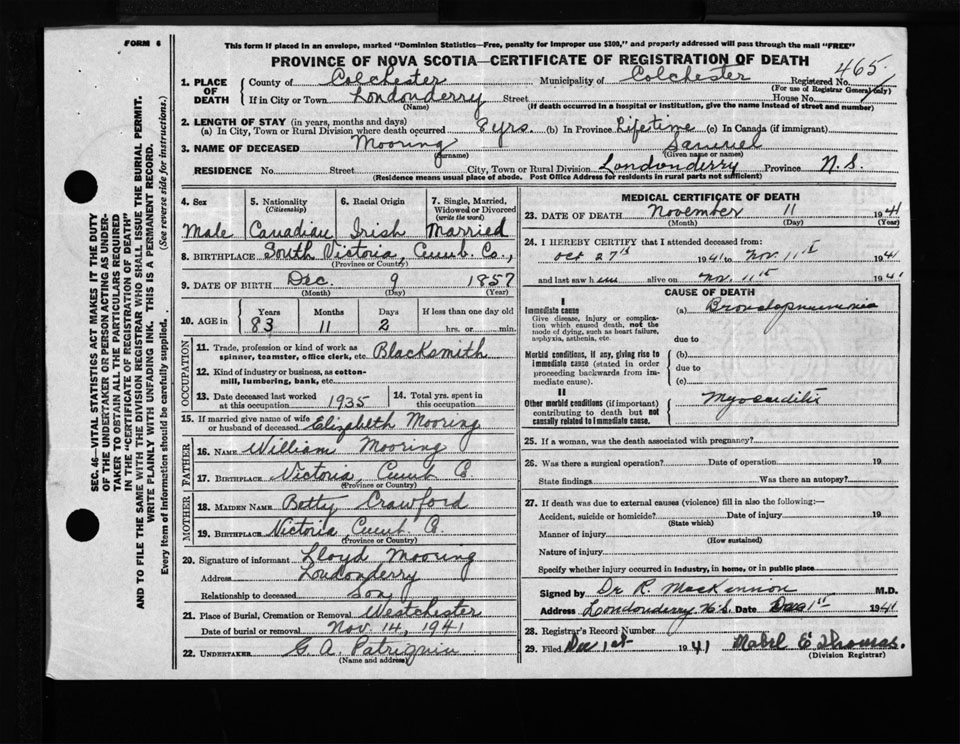 FORM 6
This form if placed in an envelope, marked "Dominion Statistics—Free, penalty for improper use $300," and properly addressed will pass through the mail "FREE"
PROVINCE OF NOVA SCOTIA—CERTIFICATE OF REGISTRATION OF DEATH
SEC. 46—VITAL STATISTICS ACT MAKES IT THE DUTY
OF THE UNDERTAKER OR PERSON ACTING AS UNDER-
TAKER TO OBTAIN ALL THE PARTICULARS REQUIRED
IN THE "CERTIFICATE OF REGISTRATION OF DEATH"
AND TO FILE THE SAME WITH THE DIVISION REGISTRAR WHO SHALL ISSUE THE BURIAL PERMIT.
WRITE PLAINLY WITH UNFADING INK. THIS IS A PERMANENT RECORD.
Every item of information should be carefully supplied. (See reverse side for instructions.)
1. PLACE OF DEATH County of Colchester Municipality of Colchester Registered No. 465
(For use of Registrar General only)
If in City or Town Londonderry Street House No.
(Name) (If death occurred in a hospital or institution, give the name instead of street and number)
2. LENGTH OF STAY (in years, months and days)
(a) In City, Town or Rural Division where death occurred 8 yrs. (b) In Province Lifetime (c) In Canada (if immigrant)
3. NAME OF DECEASED Mooring Samuel
(Surname) (Given name or names)
RESIDENCE No. Street City, Town or Rural Division Londonderry Province N.S.
(Residence means usual place of abode. Post Office Address for residents in rural parts not sufficient)
4. Sex 5. Nationality (Citizenship) 6. Racial Origin 7. Single, Married, Widowed or Divorced (write the word)
Male Canadian Irish Married
8. BIRTHPLACE South Victoria, Cumb. Co.,
(Province or Country)
9. DATE OF BIRTH Dec. 9 1857
(Month) (Day) (Year)
10. AGE in Years Months Days If less than one day old
83 11 2 hrs. or min.
OCCUPATION
11. Trade, profession or kind of work as spinner, teamster, office clerk, etc. Blacksmith
12. Kind of industry or business, as cotton-mill, lumbering, bank, etc.
13. Date deceased last worked at this occupation 1935 14. Total yrs. spent in this occupation
15. If married give name of wife or husband of deceased Elizabeth Mooring
FATHER
16. NAME William Mooring
17. BIRTHPLACE Victoria, Cumb Co
(Province or Country)
MOTHER
18. MAIDEN NAME Betty Crawford
19. BIRTHPLACE Victoria Cumb Co.
(Province or Country)
20. Signature of informant Lloyd Mooring
Address Londonderry
Relationship to deceased Son
21. Place of Burial, Cremation or Removal Westchester
Date of burial or removal Nov. 14, 1941
22. UNDERTAKER G. A. Patriquin
(Name and address)
MEDICAL CERTIFICATE OF DEATH
23. DATE OF DEATH November 11 1941
(Month) (Day) (Year)
24. I HEREBY CERTIFY that I attended deceased from:
Oct 27th 1941 to Nov. 11th 1941
and last saw him alive on Nov. 11th 1941
CAUSE OF DEATH
I
Immediate cause (a) Bronchopneumonia
Give disease, injury or complication which caused death, not the mode of dying, such as heart failure, asphyxia, asthenia, etc.
due to
Morbid conditions, if any, giving rise to immediate cause (stated in order proceeding backwards from immediate cause).
(b)
due to
(c)
II
Other morbid conditions (if important) contributing to death but not causally related to immediate cause.
Myocarditis
25. If a woman, was the death associated with pregnancy?
26. Was there a surgical operation? Date of operation 19
State findings Was there an autopsy?
27. If death was due to external causes (violence) fill in also the following:—
Accident, suicide or homicide? Date of injury 19
(State which)
Manner of injury
(How sustained)
Nature of injury
Specify whether injury occurred in industry, in home, or in public place
Signed by Dr R. MacKennon M.D.
Address Londonderry N.S. Date Dec 1st 1941
28. Registrar's Record Number
29. Filed Dec 1st 1941 Mabel E Thomas.
(Division Registrar)